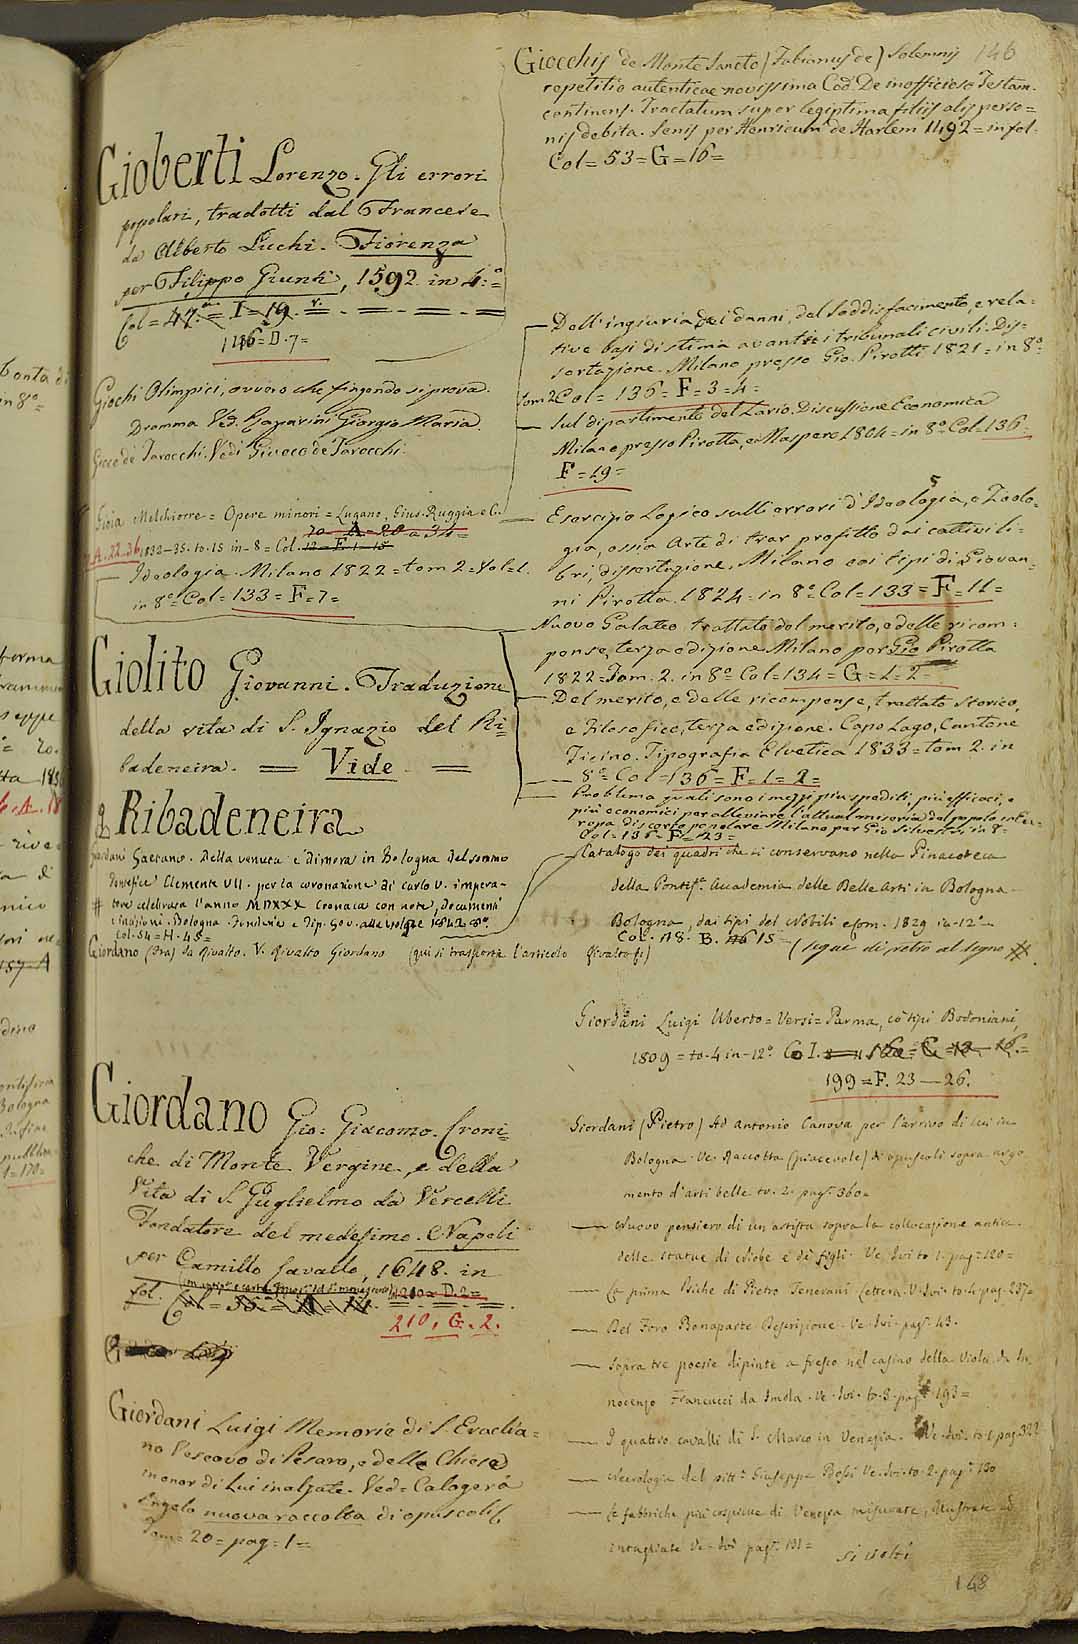 Gioberti Lorenzo. Gli errori
popolari, tradotti dal Francese
da Alberto Luchi. Fiorenza
per Filippo Giunti, 1592. in 4.º =
Col = 47. = I = 19. = = = =
116 = D. 7 =
Giochi Olimpici, ovvero che fingendo si prova.
Dramma Ved. Gasparini Giorgio Maria.
Gioco de Tarocchi. Vedi Giuoco de Tarocchi.
Gioia Melchiorre = Opere minori = Lugano, Gius. Ruggia e C.
70 = A = 20 a 34 =
A. 22. 36 1832-35. to. 15 in-8 = Col. 12 = F. 1 - 15
— Ideologia. Milano 1822 = tom 2 = Vol = 1.
in 8º Col = 133 = F = 7 =
Giolito Giovanni. Traduzione
della vita di S. Ignazio del Ri=
badeneira. = Vide =
Ribadeneira
Giordani Gaetano. Della venuta e dimora in Bologna del sommo
Pontefice Clemente VII. per la coronazione di Carlo V. impera-
# tore celebrata l'anno MDXXX Cronaca con note, documenti
e incisioni. Bologna. Fonderia e Tip. Gov. alla Volpe 1842. 8º
Col. 54 = H. 45 =
Giordano (Fra) da Rivalto. V. Rivalto Giordano (qui si trasporta l'articolo Rivalto fi)
Giordano Gio: Giacomo. Croni=
che di Monte Vergine, e della
Vita di S. Guglielmo da Vercelli
Fondatore del medesimo. Napoli
per Camillo Cavallo, 1648. in
fol. Col = 35 = A = 14. 210 = D. 2 =
210. G. 2.
Giordani Luigi Memorie di S. Eraclia=
no Vescovo di Pesaro, e delle Chiese
in onor di Lui inalzate. Ved = Calogerà
Angelo nuova raccolta di opuscoli
Tom = 20 = pag = 1 =
146
Giocchis de Monte Sancto (Fabianus de) Solemnis
repetitio autenticae novissima Cod. De inofficioso Testam.
continens. Tractatum super legiptima filiis aliis perso=
nis debita. Senis per Henricum de Harlem 1492 = in fol.
Col = 53 = G = 16 =
— Dell'ingiuria dei danni, del Soddisfacimento, e rela=
tive basi di stima avanti i tribunali civili. Dis=
sertazione. Milano presso Gio. Pirotta 1821 = in 8º
tom 2 Col = 136 = F = 3 = 4 =
— Sul dipartimento del Lario. Discussione Economica
Milano presso Pirotta, e Maspero 1804 = in 8º Col = 136 =
F = 19 =
— Esercizio Logico sulli errori d'Ideologia, e Zoolo-
gia, ossia Arte di trar profitto dai cattivi li=
bri, dissertazione. Milano coi tipi di Giovan=
ni Pirotta. 1824 = in 8º Col = 133 = F = 11 =
Nuovo Galateo trattato del merito, e delle ricom=
pense, terza edizione Milano per Gio Pirotta
1822 = Tom. 2. in 8º Col = 134 = G = 1 = 2 =
— Del merito, e delle ricompense, trattato Storico,
e Filosofico, terza edizione. Capo Lago, Cantone
Ticino. Tipografia Elvetica 1833 = tom 2. in
8º Col = 136 = F = 1 = 2 =
— Problema quali sono i mezzi più spediti, più efficaci, e
più economici per alleviare l'attual miseria del popolo in Eu-
ropa discorso popolare Milano per Gio Silvestri, in 8º
Col = 136 = F = 23 =
Catalogo dei quadri che si conservano nella Pinacoteca
della Pontif.ª Accademia delle Belle Arti in Bologna
Bologna, dai tipi del Nobili e Com. 1829 in-12º
Col. 118. B. 15 (segue di retro al segno #.
Giordani Luigi Uberto = Versi = Parma, co' tipi Bodoniani,
1809 = to. 4 in-12º Col. 160 = C = 13 - 16. =
199 = F. 23 — 26.
Giordani (Pietro) Ad Antonio Canova per l'arrivo di lui in
Bologna. Ve. Raccolta (piacevole) di opuscoli sopra argo
mento d'arti belle to. 2. pag. 360 =
— Nuovo pensiero di un artista sopra la collocazione antica
delle statue di Niobe e di figli. Ve. Ivi to 1. pag = 120 =
— La prima Psiche di Pietro Tenerani Lettera. V. Ivi. to. 1. pag. 237 =
— Del Foro Bonaparte Descrizione. Ve. Ivi. pag. 43.
— Sopra tre poesie dipinte a fresco nel casino della Viola da In
nocenzo Francucci da Imola. Ve. Ivi. to. 2. pag. 193 =
— I quattro cavalli di S. Marco in Venezia. Ve. Ivi. to. 1. pag. 322
— Necrologia del pitt.e Giuseppe Bossi Ve. Ivi. to. 2. pag. 130
— Le fabbriche più cospicue di Venezia misurate, illustrate ed
intagliate Ve. Ivi pag. 131 =
si volti
148